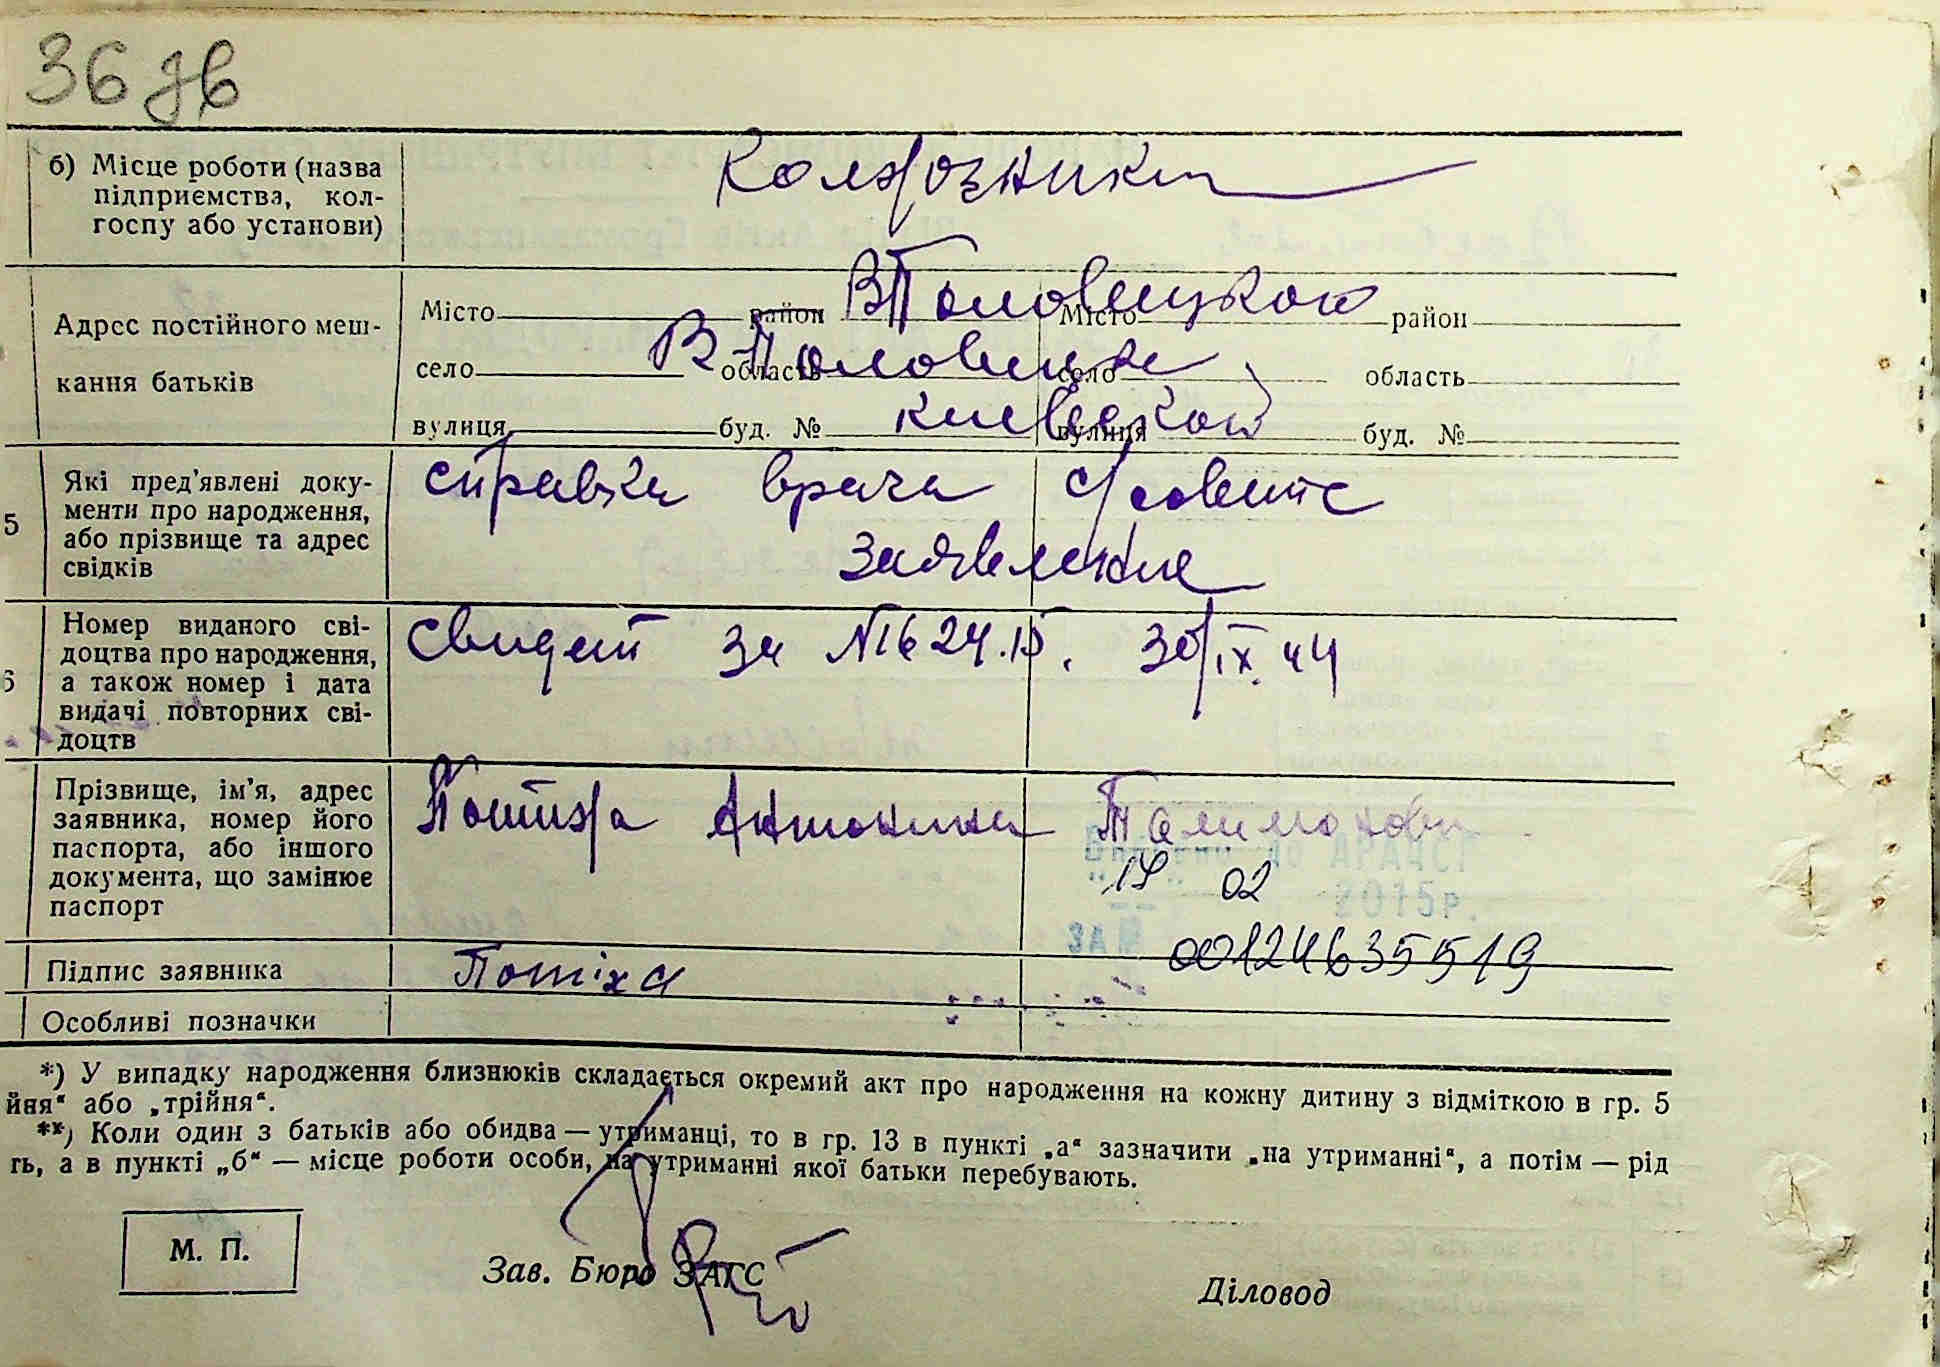 36 зв
б) Місце роботи (назва
підприємства, кол-
госпу або установи)
Колхозники
Адрес постійного меш-
кання батьків
Місто район Місто район
В Половецкого
село область село область
В-Половецке
вулиця буд. № вулиця буд. №
Киевской
5
Які пред'явлені доку-
менти про народження,
або прізвище та адрес
свідків
справка врача с/совета
Заявление
6
Номер виданого сві-
доцтва про народження,
а також номер і дата
видачі повторних сві-
доцтв
Свидет за №
30/IX 44
Прізвище, ім'я, адрес
заявника, номер його
паспорта, або іншого
документа, що замінює
паспорт
Потиха Антонина
Внесено до ДРАЦСГ
"19" 02 2015р.
ЗА №
00124635519
Підпис заявника
Потіха
Особливі позначки
*) У випадку народження близнюків складається окремий акт про народження на кожну дитину з відміткою в гр. 5
йня“ або „трійня“.
**) Коли один з батьків або обидва — утриманці, то в гр. 13 в пункті „а“ зазначити „на утриманні“, а потім — рід
ть, а в пункті „б“ — місце роботи особи, на утриманні якої батьки перебувають.
М. П.
Зав. Бюро ЗАГС
Діловод